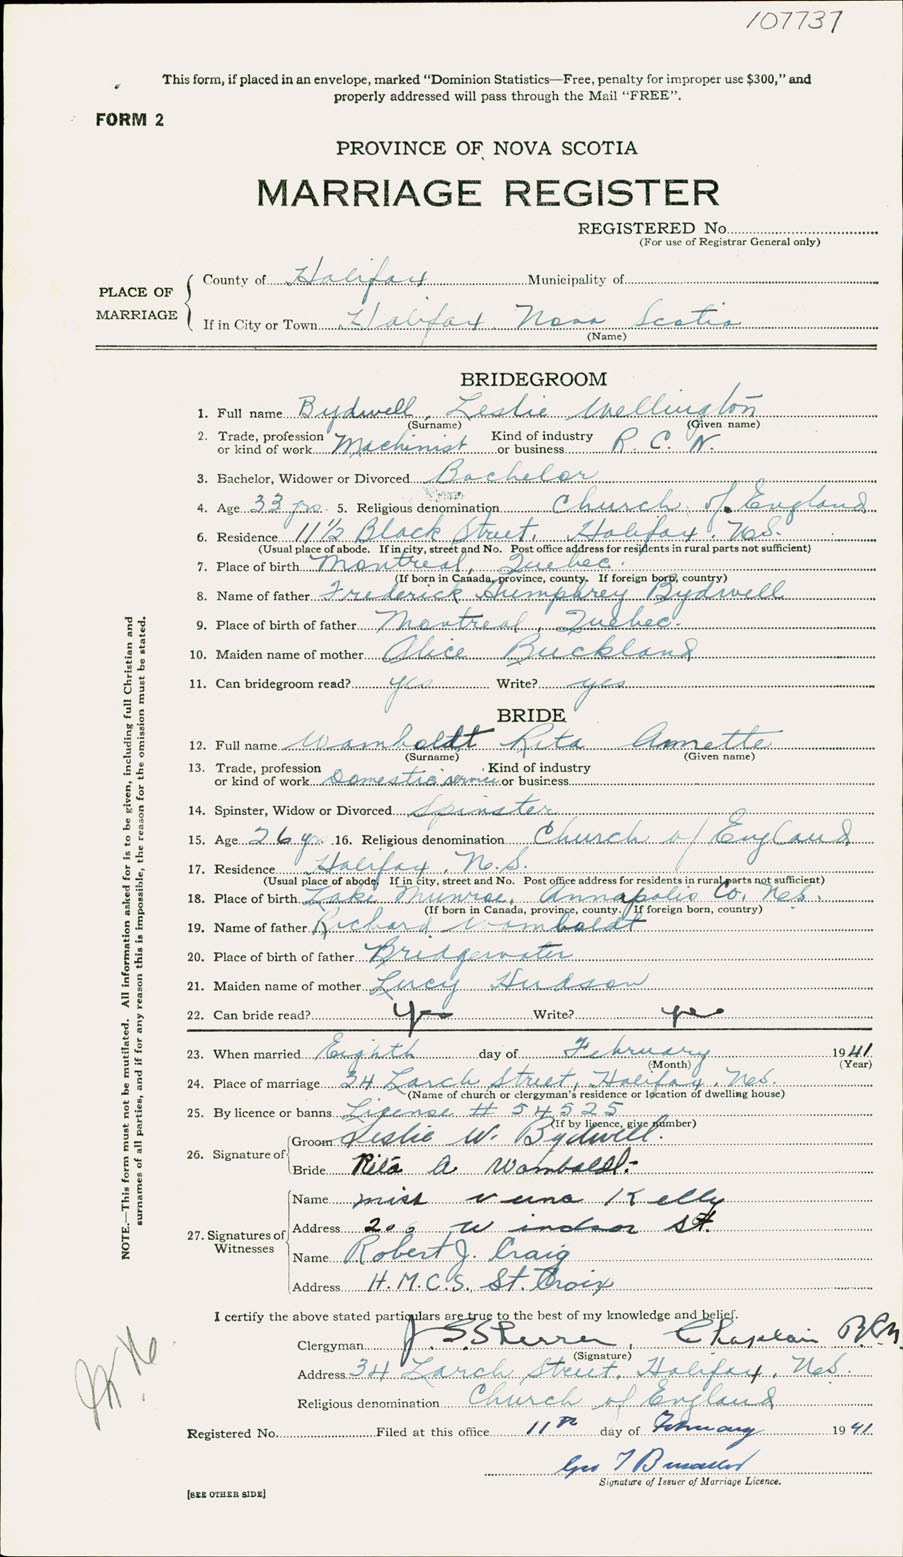 107737
This form, if placed in an envelope, marked “Dominion Statistics—Free, penalty for improper use $300,” and
properly addressed will pass through the Mail “FREE”.
FORM 2
PROVINCE OF NOVA SCOTIA
MARRIAGE REGISTER
REGISTERED No.
(For use of Registrar General only)
PLACE OF MARRIAGE
County of Halifax Municipality of
If in City or Town Halifax Nova Scotia
(Name)
BRIDEGROOM
1. Full name Bydwell, Leslie Wellington
(Surname) (Given name)
2. Trade, profession or kind of work Machinist Kind of industry or business R. C. N.
3. Bachelor, Widower or Divorced Bachelor
4. Age 33 yrs. 5. Religious denomination Church of England
6. Residence 11½ Black Street, Halifax, N.S.
(Usual place of abode. If in city, street and No. Post office address for residents in rural parts not sufficient)
7. Place of birth Montreal, Quebec.
(If born in Canada, province, county. If foreign born, country)
8. Name of father Frederick Humphrey Bydwell
9. Place of birth of father Montreal, Quebec.
10. Maiden name of mother Alice Buckland
11. Can bridegroom read? yes Write? yes
BRIDE
12. Full name Wamboldt Rita Annette
(Surname) (Given name)
13. Trade, profession or kind of work Domestic service Kind of industry or business
14. Spinster, Widow or Divorced Spinster
15. Age 26 yrs. 16. Religious denomination Church of England
17. Residence Halifax, N.S.
(Usual place of abode. If in city, street and No. Post office address for residents in rural parts not sufficient)
18. Place of birth Lake Munroe, Annapolis Co. N.S.
(If born in Canada, province, county. If foreign born, country)
19. Name of father Richard Wamboldt
20. Place of birth of father Bridgewater
21. Maiden name of mother Lucy Hudson
22. Can bride read? yes Write? yes
23. When married Eighth day of February 1941
(Month) (Year)
24. Place of marriage 34 Larch Street, Halifax, N.S.
(Name of church or clergyman's residence or location of dwelling house)
25. By licence or banns License # 54525
(If by licence, give number)
26. Signature of
Groom Leslie W. Bydwell.
Bride Rita A Wamboldt.
27. Signatures of Witnesses
Name Miss Kelly
Address 206 Windsor St.
Name Robert J. Craig
Address H.M.C.S. St. Croix
I certify the above stated particulars are true to the best of my knowledge and belief.
Clergyman Chaplain
(Signature)
Address 34 Larch Street, Halifax, N.S.
Religious denomination Church of England
Registered No. Filed at this office 11th day of February 1941
Geo T
Signature of Issuer of Marriage Licence.
[SEE OTHER SIDE]
NOTE.—This form must not be mutilated. All information asked for is to be given, including full Christian and
surnames of all parties, and if for any reason this is impossible, the reason for the omission must be stated.